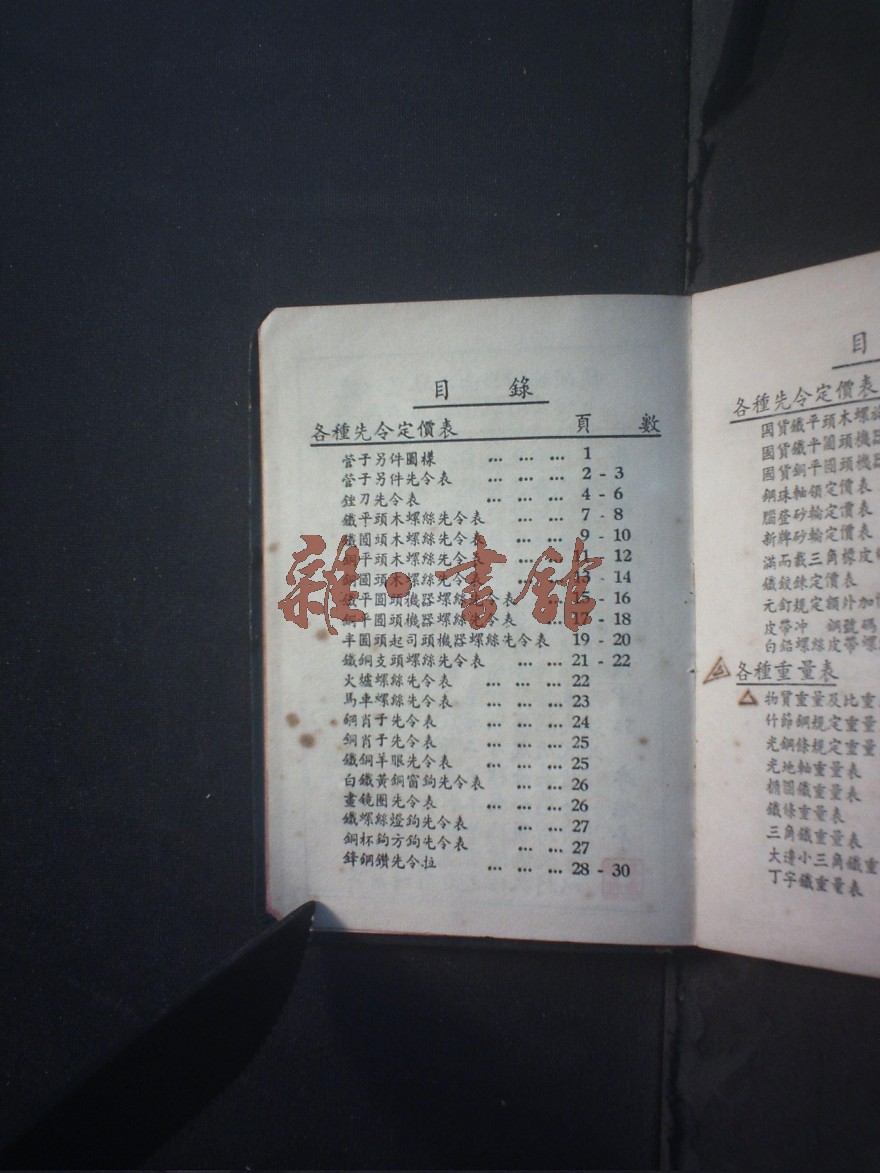 目錄
各種先令定價表 頁數
管子另件圖樣 ... ... ... 1
管子另件先令表 ... ... ... 2 - 3
銼刀先令表 ... ... ... 4 - 6
鐵平頭木螺絲先令表 ... ... 7 - 8
鐵圓頭木螺絲先令表 ... ... 9 - 10
銅平頭木螺絲先令表 ... ... 11 - 12
銅圓頭木螺絲先令表 ... ... 13 - 14
鐵平圓頭機器螺絲先令表 ... 15 - 16
銅平圓頭機器螺絲先令表 ... 17 - 18
半圓頭起司頭機器螺絲先令表 19 - 20
鐵銅支頭螺絲先令表 ... ... 21 - 22
火爐螺絲先令表 ... ... ... 22
馬車螺絲先令表 ... ... ... 23
鋼肖子先令表 ... ... ... 24
銅肖子先令表 ... ... ... 25
鐵銅羊眼先令表 ... ... ... 25
白鐵黃銅窗鈎先令表 ... ... 26
畫鏡圈先令表 ... ... ... 26
鐵螺絲燈鈎先令表 ... ... 27
銅杯鈎方鈎先令表 ... ... 27
鋒鋼鑽先令拉 ... ... ... 28 - 30
雜·書館
目
各種先令定價表
國貨鐵平頭木螺
國貨鐵平圓頭機器
國貨銅平圓頭機器
鋼珠軸領定價表
腦登砂輪定價表
新牌砂輪定價表
滿而載三角橡皮
鐵鉸鍊定價表
元釘規定額外加
皮帶冲 鋼號碼
白鉛螺絲皮帶螺
各種重量表
物質重量及比重
竹節鋼規定重量
光鋼條規定重量
光地軸重量表
橢圓鐵重量表
鐵條重量表
三角鐵重量表
大邊小三角鐵重
丁字鐵重量表